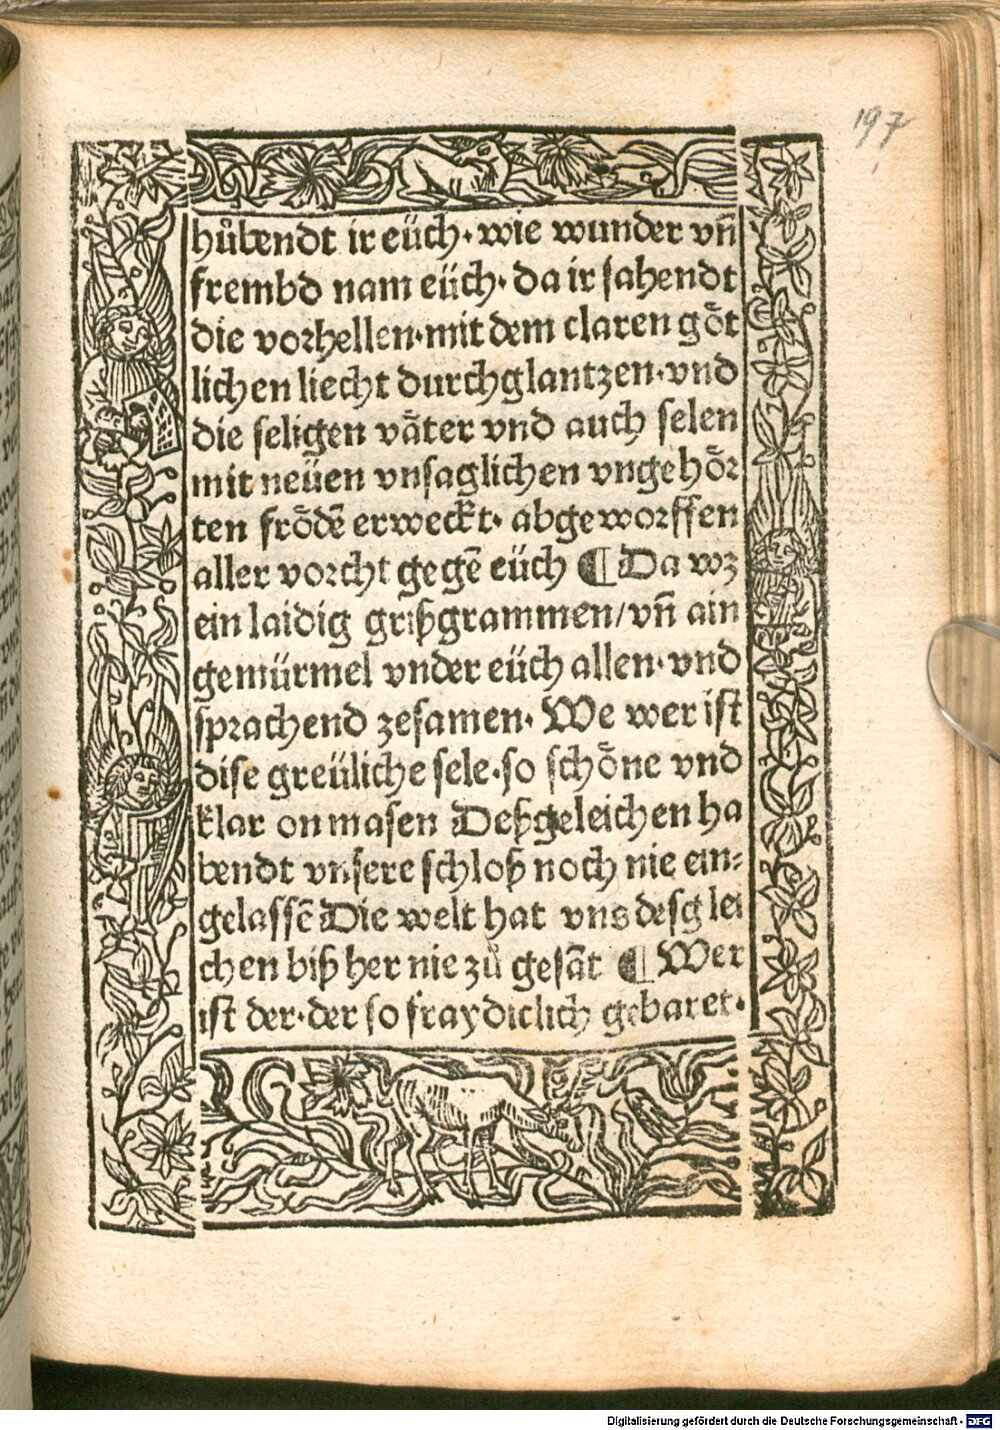 197
hůbendt ir eüch · wie wunder vn̄
frembd nam eüch · da ir sahendt
die vorhellen · mit dem claren gőt
lichen liecht durchglantzen · vnd
die seligen våter vnd auch selen
mit neüen vnsaglichen vngehőr
ten frődē erweckt · abgeworffen
aller vorcht gegē eüch ¶ Da wz
ein laidig grißgrammen / vn̄ ain
gemürmel vnder eüch allen · vnd
sprachend zesamen · We wer ist
dise greüliche sele · so schőne vnd
klar on masen Deßgeleichen ha
bendt vnsere schloß noch nie ein⸗
gelassē Die welt hat vns desglei
chen biß her nie zů gesāt ¶ Wer
ist der · der so fraydiclich gebaret ·
Digitalisierung gefördert durch die Deutsche Forschungsgemeinschaft - DFG